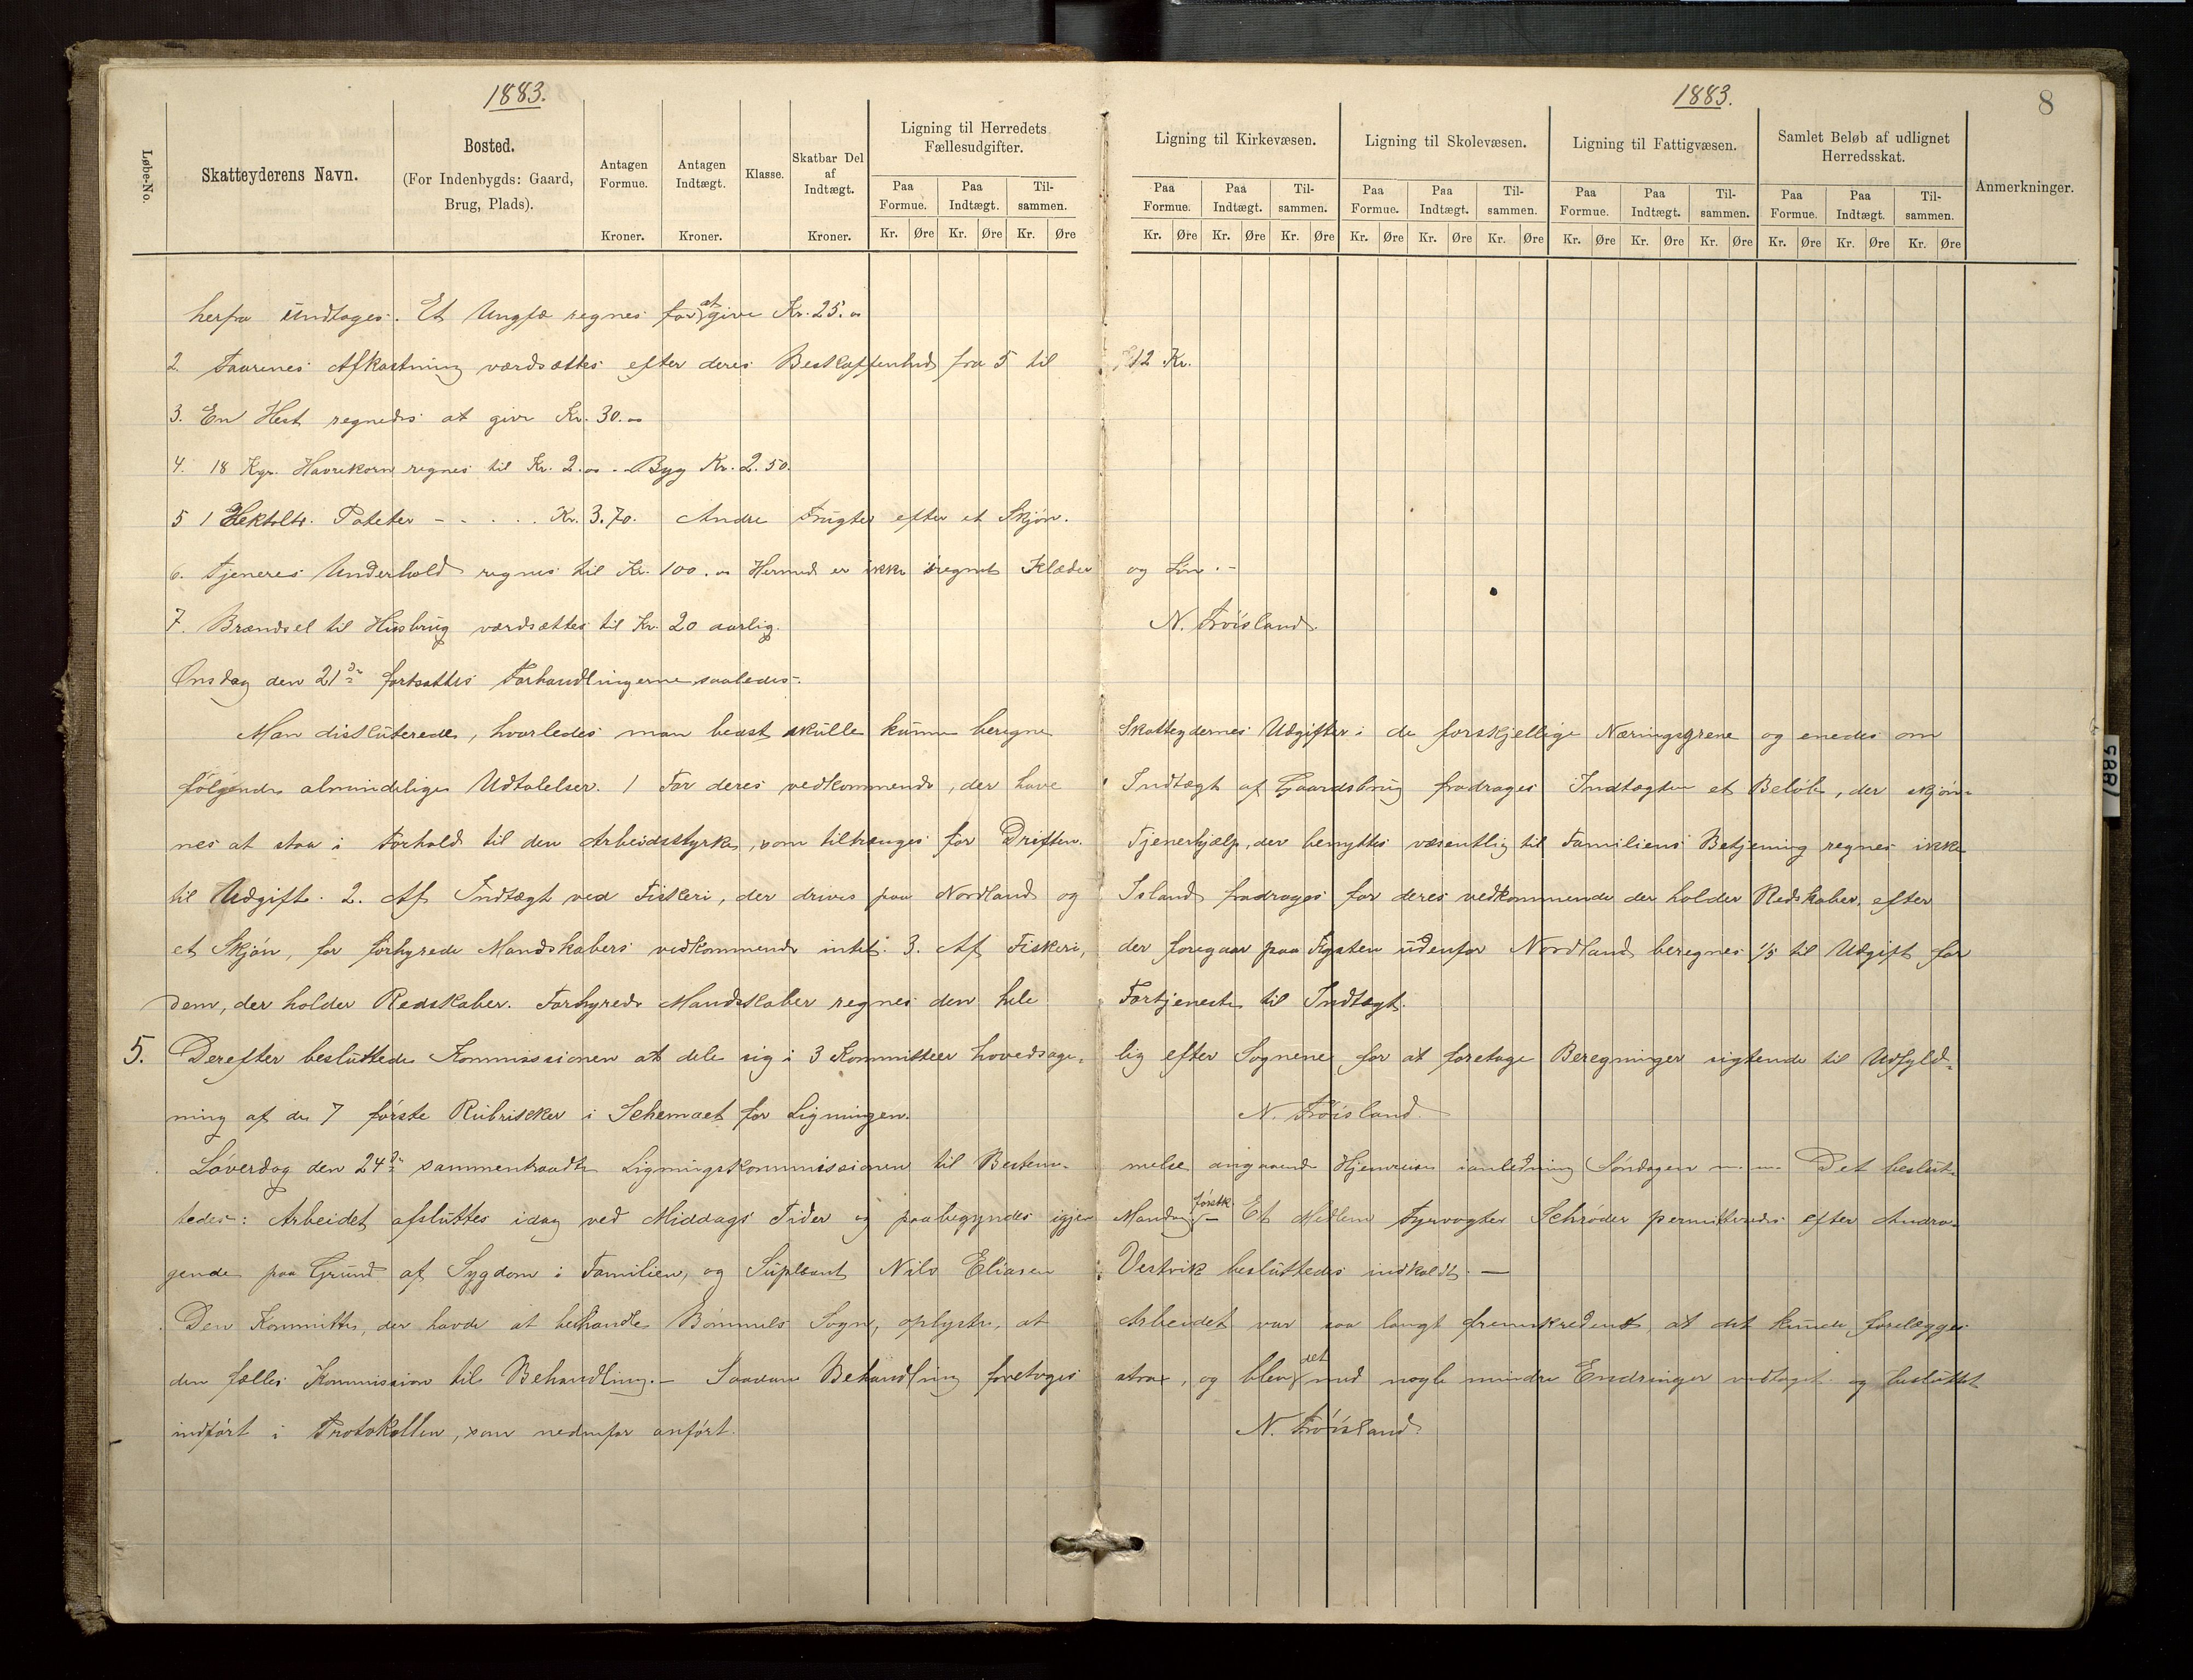 1883.
1883.
8
Løbe-No.
Skatteyderens Navn.
Bosted.
(For Indenbygds: Gaard,
Brug, Plads).
Antagen
Formue.
Kroner.
Antagen
Indtægt.
Kroner.
Klasse.
Skatbar Del
af
Indtægt.
Kroner.
Ligning til Herredets
Fællesudgifter.
Paa Formue. Paa Indtægt. Til-sammen.
Kr. Øre Kr. Øre Kr. Øre
Ligning til Kirkevæsen.
Paa Formue. Paa Indtægt. Til-sammen.
Kr. Øre Kr. Øre Kr. Øre
Ligning til Skolevæsen.
Paa Formue. Paa Indtægt. Til-sammen.
Kr. Øre Kr. Øre Kr. Øre
Ligning til Fattigvæsen.
Paa Formue. Paa Indtægt. Til-sammen.
Kr. Øre Kr. Øre Kr. Øre
Samlet Beløb af udlignet
Herredsskat.
Paa Formue. Paa Indtægt. Til-sammen.
Kr. Øre Kr. Øre Kr. Øre
Anmerkninger.
herfra undtages. Et Ungfæ regnes for at give Kr. 25.00
2. Faarenes Afkastning værdsættes efter deres Beskaffenhed fra 5 til 12 Kr.
3. En Hest regnedes at give Kr. 30.00
4. 18 Kgr. Havrekorn regnes til Kr. 2.00 - Byg Kr. 2.50.
5 1 Hektoltr. Poteter - - . . . Kr. 3.70. Andre Frugter efter et Skjøn.
6. Tjeneres Underhold regnes til Kr. 100.00 Hermed er ikke iregnet Klæder og Løn. -
7. Brændsel til Husbrug værdsættes til Kr. 20 aarlig. N. Frøisland.
Onsdag den 21de fortsattes Forhandlingerne saaledes:
Man diskuterede, hvorledes man beast skulle kunne beregne Skatteydernes Udgifter i de forskjellige Næringsgrene og enedes om
følgende almindelige Udtalelser. 1 For deres vedkommende, der have Indtægt af Gaardsbrug fradrages Indtægten et Beløb, der skjøn-
nes at staa i Forhold til den Arbeidsstyrke, som tiltrænges for Driften. Tjenerhjælp, der benyttes væsentlig til Familiens Betjening regnes ikke
til Udgift. 2. Af Indtægt ved Fiskeri, der drives paa Nordland og Island fradrages for deres vedkommende der holder Redskaber, efter
et Skjøn, for forhyrede Mandskabers vedkommende intet. 3. Af Fiskeri, der foregaar paa Kysten udenfor Nordland beregnes 1/5 til Udgift for
dem, der holder Redskaber. Forhyrede Mandskaber regnes den hele Fortjeneste til Indtægt.
5. Derefter besluttede Kommissionen at dele sig i 3 Kommitteer hovedsage- lig efter Sognene for at foretage Beregninger sigtende til Udfyld-
ning af de 7 første Rubrikker i Schemaet for Ligningen. N. Frøisland.
Løverdag den 24de sammentraadte Ligningskommissionen til Bestem- melse angaaende Hjemreise ianledning Søndagen m. m. Det beslut-
tedes: Arbeidet afsluttes idag ved Middags Tider og paabegyndes igjen Mandag førstk. - Et Medlem Fyrvogter Schrøder permitteredes efter Andra-
gende paa Grund af Sygdom i Familien, og Supleant Nils Eliasen Vestvik besluttedes indkaldt. -
Den Kommitte, der havde at behandle Bømmels Sogn, oplyste, at Arbeidet var saa langt fremskredent, at det kunde forelægges
den fælles Kommission til Behandling. - Saadan Behandling foretoges strax, og blev det med nogle mindre Endringer vedtaget og besluttet
indført i Protokollen, som nedenfor anført. N. Frøisland.
1883